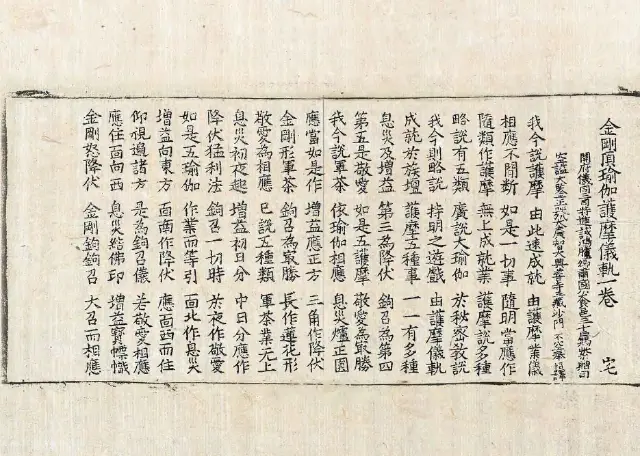 金剛頂瑜伽護摩儀軌一卷 宅
開府儀同三司特進試鴻臚卿肅國公食邑三千戶賜紫贈司
空謚大鑒正號大廣智大興善寺三藏沙門不空奉詔譯
我今說護摩 由此速成就 由護摩業儀
相應不間斷 如是一切事 隨明當應作
隨類作護摩 無上成就業 護摩說多種
略說有五類 廣說大瑜伽 於秘密教說
我今則略說 持明之遊戲 由護摩儀軌
成就於族壇 護摩五種事 一一有多種
息災及增益 第三為降伏 鉤召為第四
第五是敬愛 如是五護摩 敬愛為最勝
我今說軍茶 依瑜伽相應 息災爐正圓
應當如是作 增益應正方 三角作降伏
金剛形軍茶 鉤召為最勝 長作蓮花形
敬愛為相應 已說五種類 軍茶業无上
息災初夜趣 增益初日分 中日分應作
降伏猛利法 鉤召一切時 於夜作敬愛
如是五瑜伽 作業而等引 面北作息災
增益向東方 面南作降伏 應面西而住
仰視遍諸方 是為鉤召儀 若敬愛相應
應住面向西 息災結佛印 增益寶幖幟
金剛怒降伏 金剛鉤鉤召 大召而相應